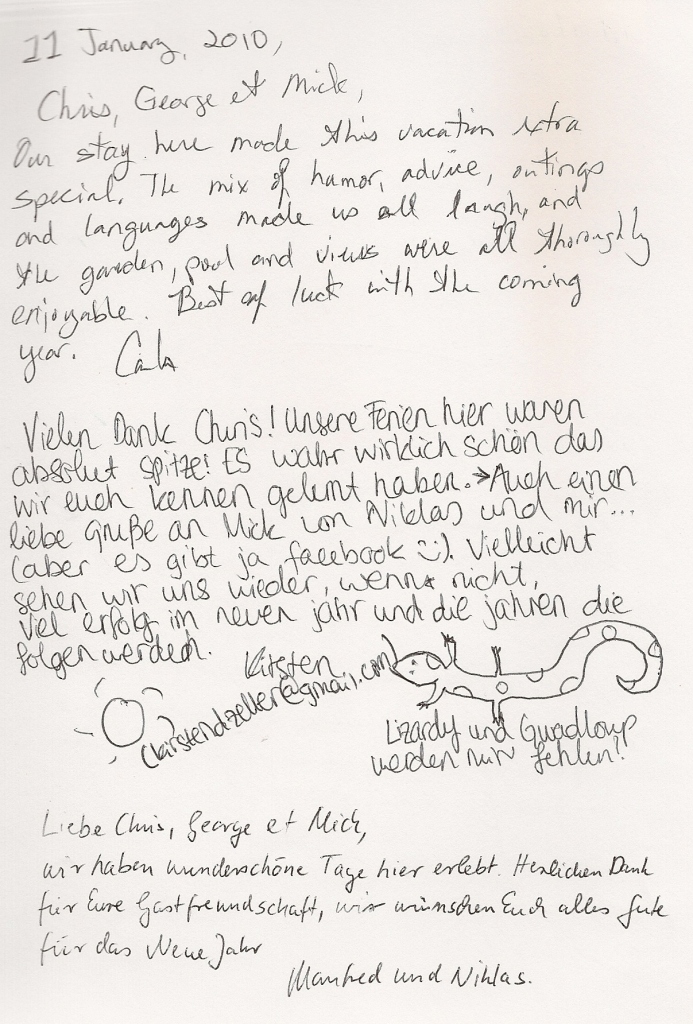 11 January, 2010,
Chris, George et Mick,
Our stay here made this vacation extra
special. The mix of humor, advice, outings
and languages made us all laugh, and
the garden, pool and views were all thoroughly
enjoyable. Best of luck with the coming
year. Carla
Vielen Dank Chris! Unsere Ferien hier waren
absolut spitze! ES wahr wirklich schön das
wir euch kennen gelernt haben. → Auch einen
liebe grüße an Mick von Niklas und mir...
(aber es gibt ja facebook :)). Vielleicht
sehen wir uns wieder, wenn nicht,
viel erfolg im neuen jahr und die jahren die
folgen werden.
Kirsten
(kirstendzeller@gmail.com)
Lizardy und Guadloup
werden mir fehlen!!
Liebe Chris, George et Mick,
wir haben wunderschöne Tage hier erlebt. Herzlichen Dank
für Eure Gastfreundschaft, wir wünschen Euch alles Gute
für das Neue Jahr
Manfred und Niklas.